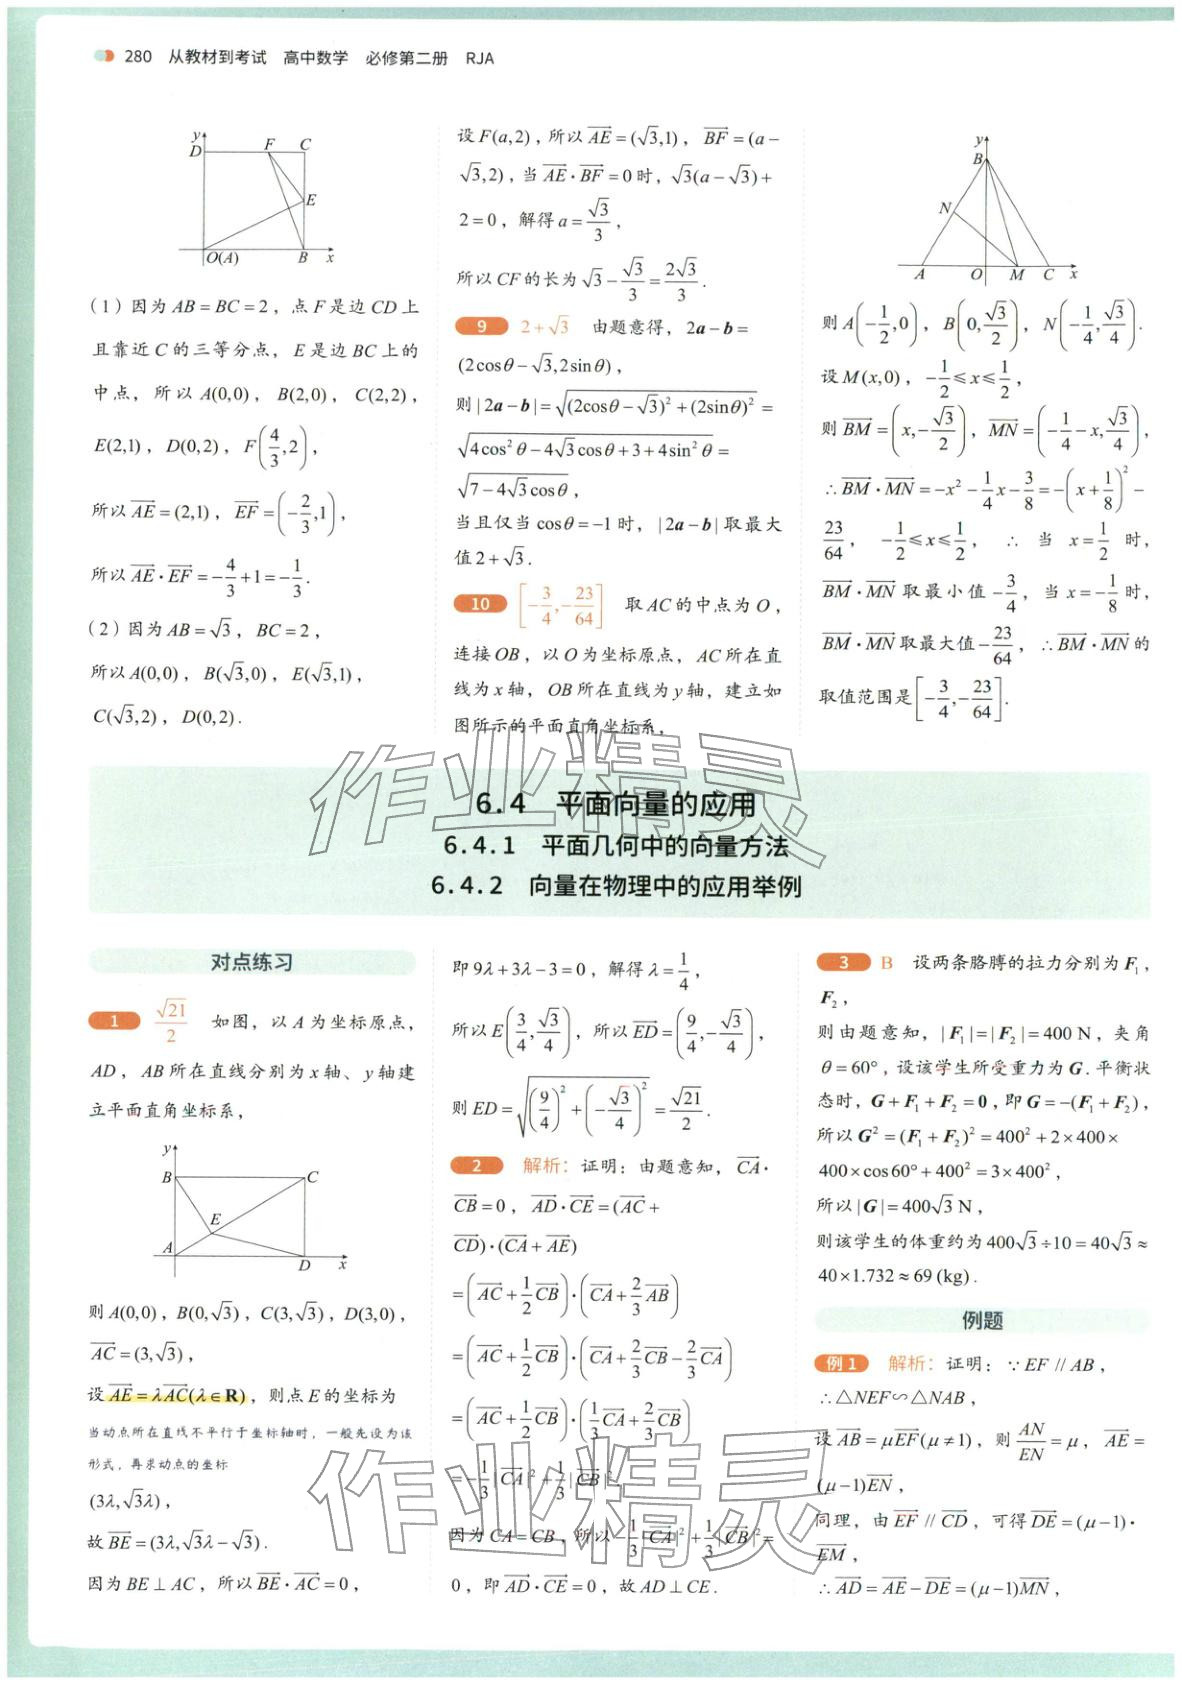 280 从教材到考试 高中数学 必修第二册 RJA
y
D F C
E
O(A) B x
(1)因为AB=BC=2,点F是边CD上
且靠近C的三等分点,E是边BC上的
中点,所以A(0,0),B(2,0),C(2,2),
E(2,1),D(0,2),F(4/3,2),
所以\overrightarrow{AE}=(2,1),\overrightarrow{EF}=(-2/3,1),
所以\overrightarrow{AE}·\overrightarrow{EF}=-4/3+1=-1/3.
(2)因为AB=√3,BC=2,
所以A(0,0),B(√3,0),E(√3,1),
C(√3,2),D(0,2).
设F(a,2),所以\overrightarrow{AE}=(√3,1),\overrightarrow{BF}=(a-
√3,2),当\overrightarrow{AE}·\overrightarrow{BF}=0时,√3(a-√3)+
2=0,解得a=√3/3,
所以CF的长为√3-√3/3=2√3/3.
9 2+√3 由题意得,2a-b=
(2cosθ-√3,2sinθ),
则|2a-b|=√((2cosθ-√3)²+(2sinθ)²)=
√(4cos²θ-4√3cosθ+3+4sin²θ)=
√(7-4√3cosθ),
当且仅当cosθ=-1时,|2a-b|取最大
值2+√3.
10 [-3/4,-23/64] 取AC的中点为O,
连接OB,以O为坐标原点,AC所在直
线为x轴,OB所在直线为y轴,建立如
图所示的平面直角坐标系,
y
B
N
A O M C x
则A(-1/2,0),B(0,√3/2),N(-1/4,√3/4).
设M(x,0),-1/2≤x≤1/2,
则\overrightarrow{BM}=(x,-√3/2),\overrightarrow{MN}=(-1/4-x,√3/4),
∴\overrightarrow{BM}·\overrightarrow{MN}=-x²-1/4x-3/8=-(x+1/8)²-
23/64,-1/2≤x≤1/2,∴当x=1/2时,
\overrightarrow{BM}·\overrightarrow{MN}取最小值-3/4,当x=-1/8时,
\overrightarrow{BM}·\overrightarrow{MN}取最大值-23/64,∴\overrightarrow{BM}·\overrightarrow{MN}的
取值范围是[-3/4,-23/64].
作业精灵
6.4 平面向量的应用
6.4.1 平面几何中的向量方法
6.4.2 向量在物理中的应用举例
对点练习
1 √21/2 如图,以A为坐标原点,
AD,AB所在直线分别为x轴、y轴建
立平面直角坐标系,
y
B C
E
A D x
则A(0,0),B(0,√3),C(3,√3),D(3,0),
\overrightarrow{AC}=(3,√3),
设\overrightarrow{AE}=λ\overrightarrow{AC}(λ∈R),则点E的坐标为
当动点所在直线不平行于坐标轴时,一般先设为该
形式,再求动点的坐标
(3λ,√3λ),
故\overrightarrow{BE}=(3λ,√3λ-√3).
因为BE⊥AC,所以\overrightarrow{BE}·\overrightarrow{AC}=0,
即9λ+3λ-3=0,解得λ=1/4,
所以E(3/4,√3/4),所以\overrightarrow{ED}=(9/4,-√3/4),
则ED=√((9/4)²+(-√3/4)²)=√21/2.
2 解析:证明:由题意知,\overrightarrow{CA}·
\overrightarrow{CB}=0,\overrightarrow{AD}·\overrightarrow{CE}=(\overrightarrow{AC}+
\overrightarrow{CD})·(\overrightarrow{CA}+\overrightarrow{AE})
=(\overrightarrow{AC}+1/2\overrightarrow{CB})·(\overrightarrow{CA}+2/3\overrightarrow{AB})
=(\overrightarrow{AC}+1/2\overrightarrow{CB})·(\overrightarrow{CA}+2/3\overrightarrow{CB}-2/3\overrightarrow{CA})
=(\overrightarrow{AC}+1/2\overrightarrow{CB})·(1/3\overrightarrow{CA}+2/3\overrightarrow{CB})
=-1/3|\overrightarrow{CA}|²+1/3|\overrightarrow{CB}|².
因为CA=CB,所以-1/3|\overrightarrow{CA}|²+1/3|\overrightarrow{CB}|²=
0,即\overrightarrow{AD}·\overrightarrow{CE}=0,故AD⊥CE.
3 B 设两条胳膊的拉力分别为F₁,
F₂,
则由题意知,|F₁|=|F₂|=400 N,夹角
θ=60°,设该学生所受重力为G.平衡状
态时,G+F₁+F₂=0,即G=-(F₁+F₂),
所以G²=(F₁+F₂)²=400²+2×400×
400×cos60°+400²=3×400²,
所以|G|=400√3 N,
则该学生的体重约为400√3÷10=40√3≈
40×1.732≈69(kg).
例题
例1 解析:证明:∵EF∥AB,
∴△NEF∽△NAB,
设\overrightarrow{AB}=μ\overrightarrow{EF}(μ≠1),则AN/EN=μ,\overrightarrow{AE}=
(μ-1)\overrightarrow{EN},
同理,由\overrightarrow{EF}∥\overrightarrow{CD},可得\overrightarrow{DE}=(μ-1)·
\overrightarrow{EM},
∴\overrightarrow{AD}=\overrightarrow{AE}-\overrightarrow{DE}=(μ-1)\overrightarrow{MN},
作业精灵